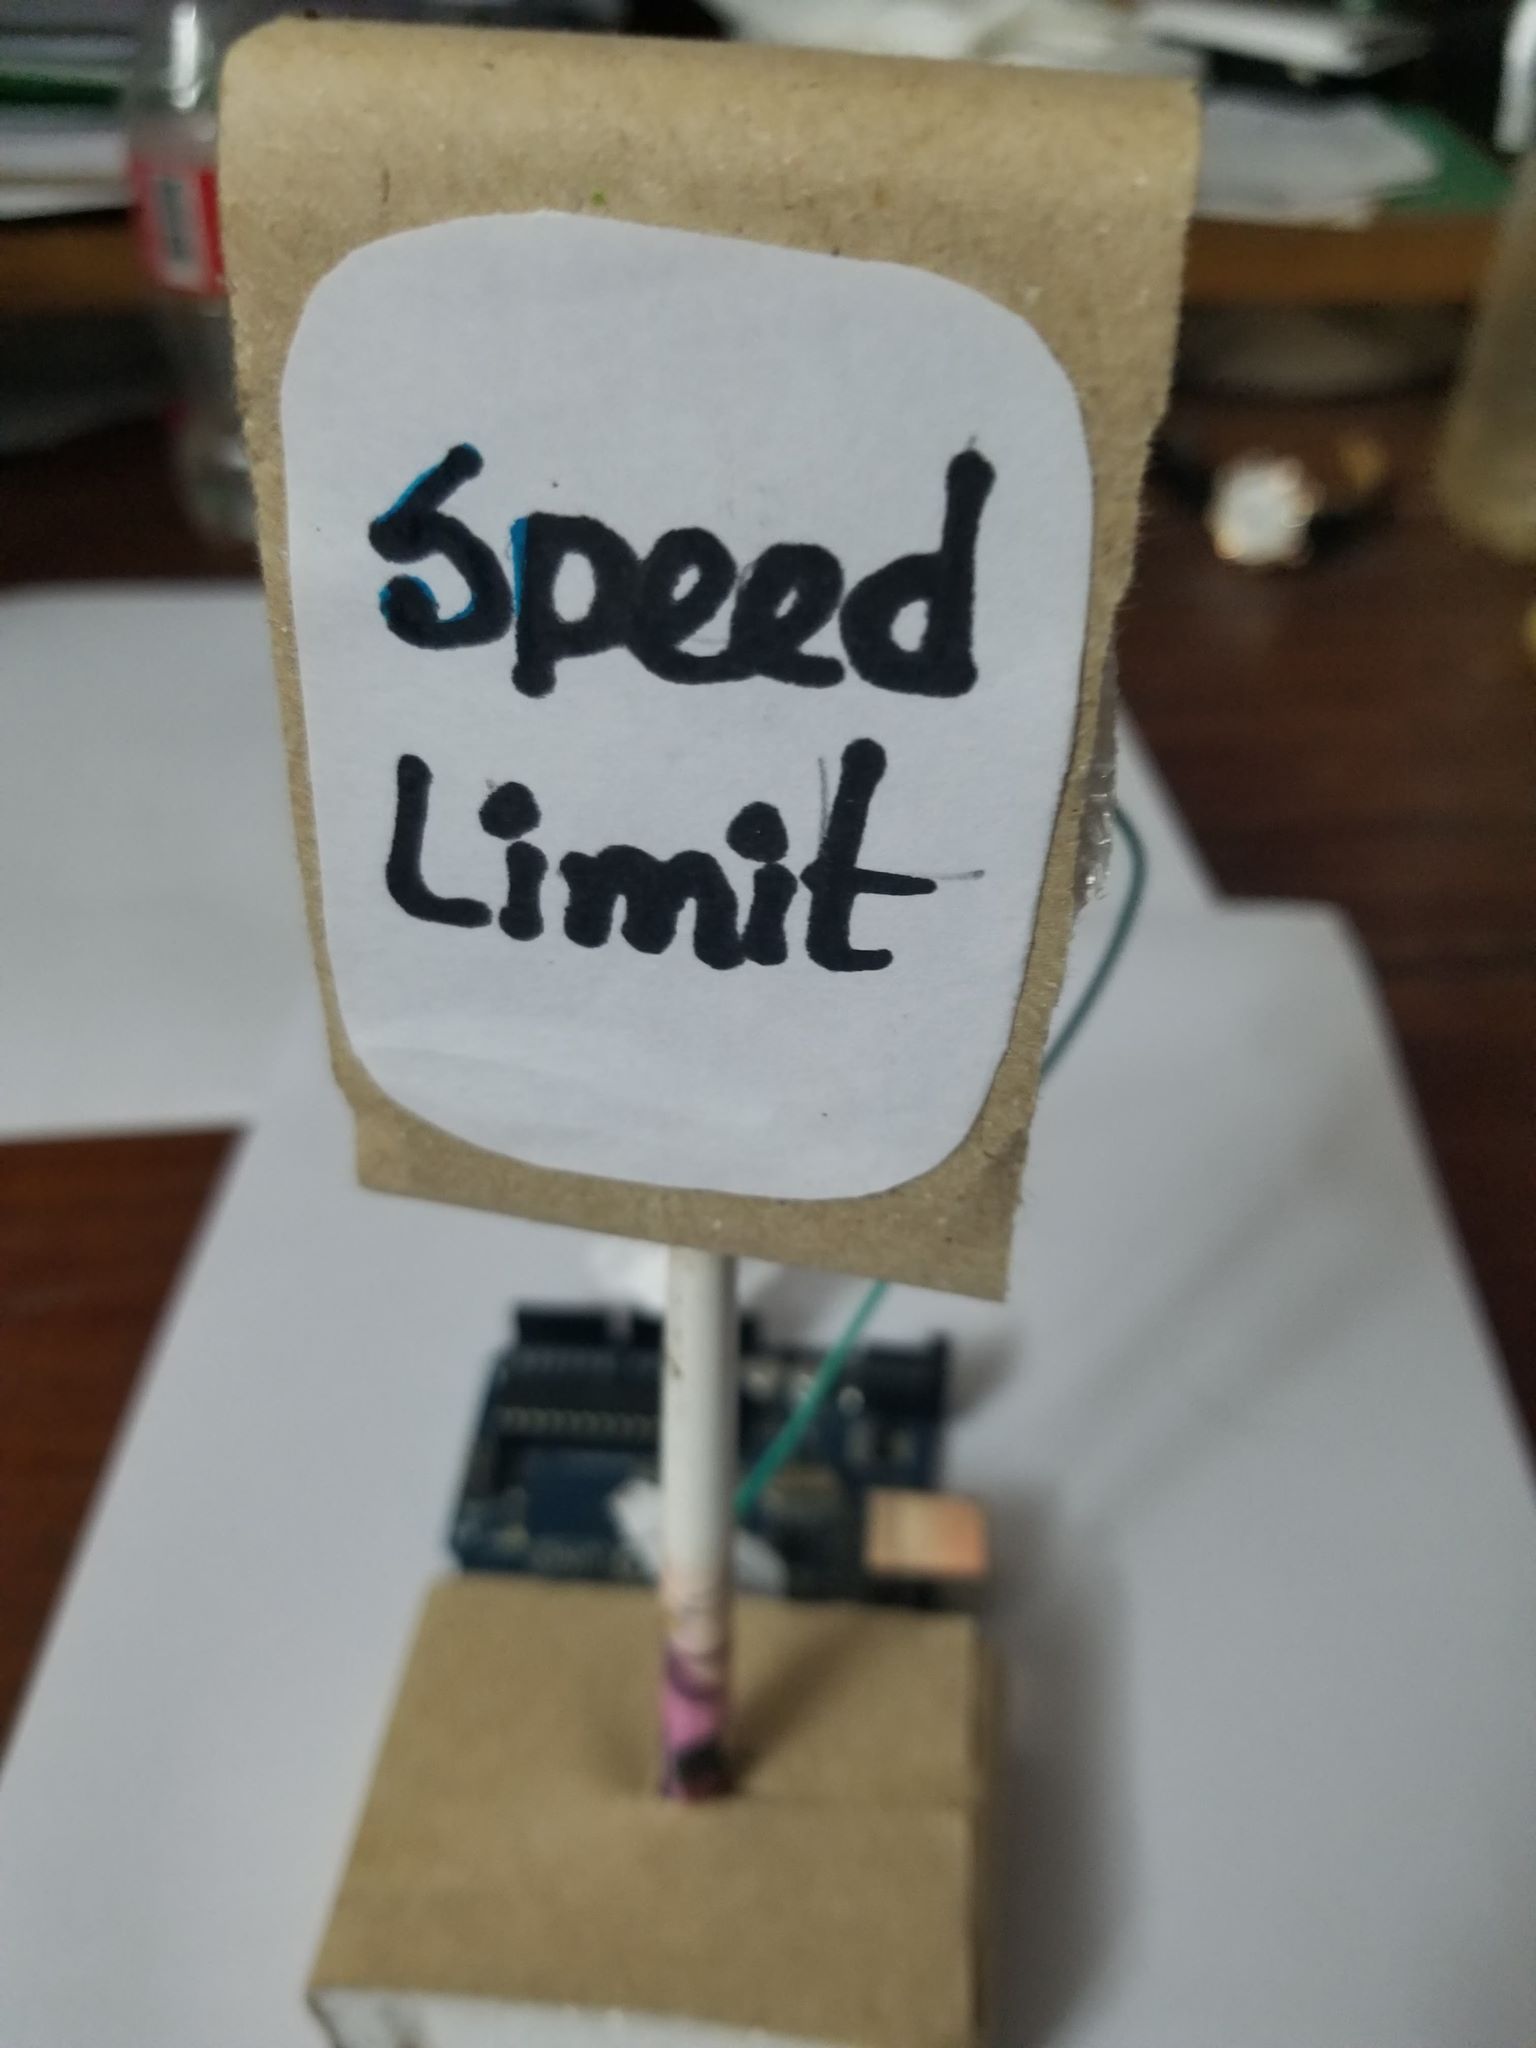 Speed
Limit